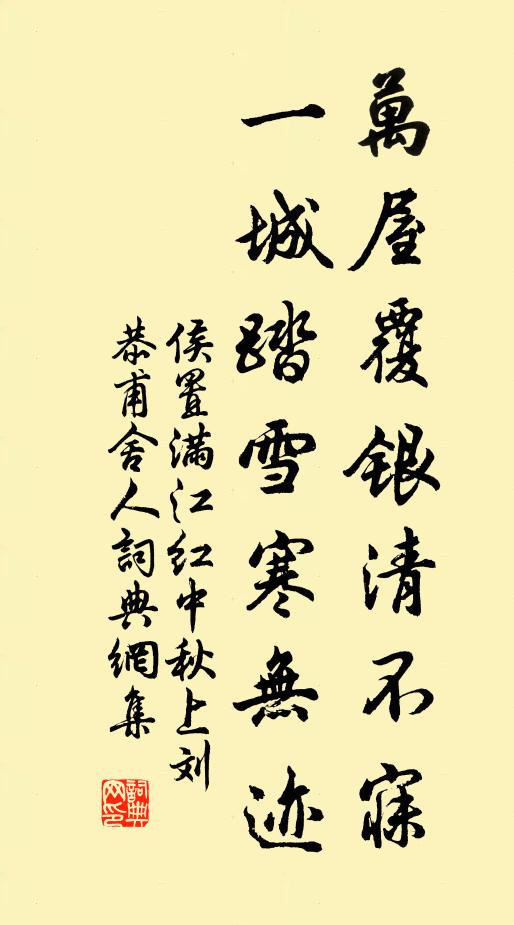 萬屋覆銀清不寐
一城踏雪寒無迹
侯置滿江红中秋上刘
恭甫舍人詞典網集
詞典
网印